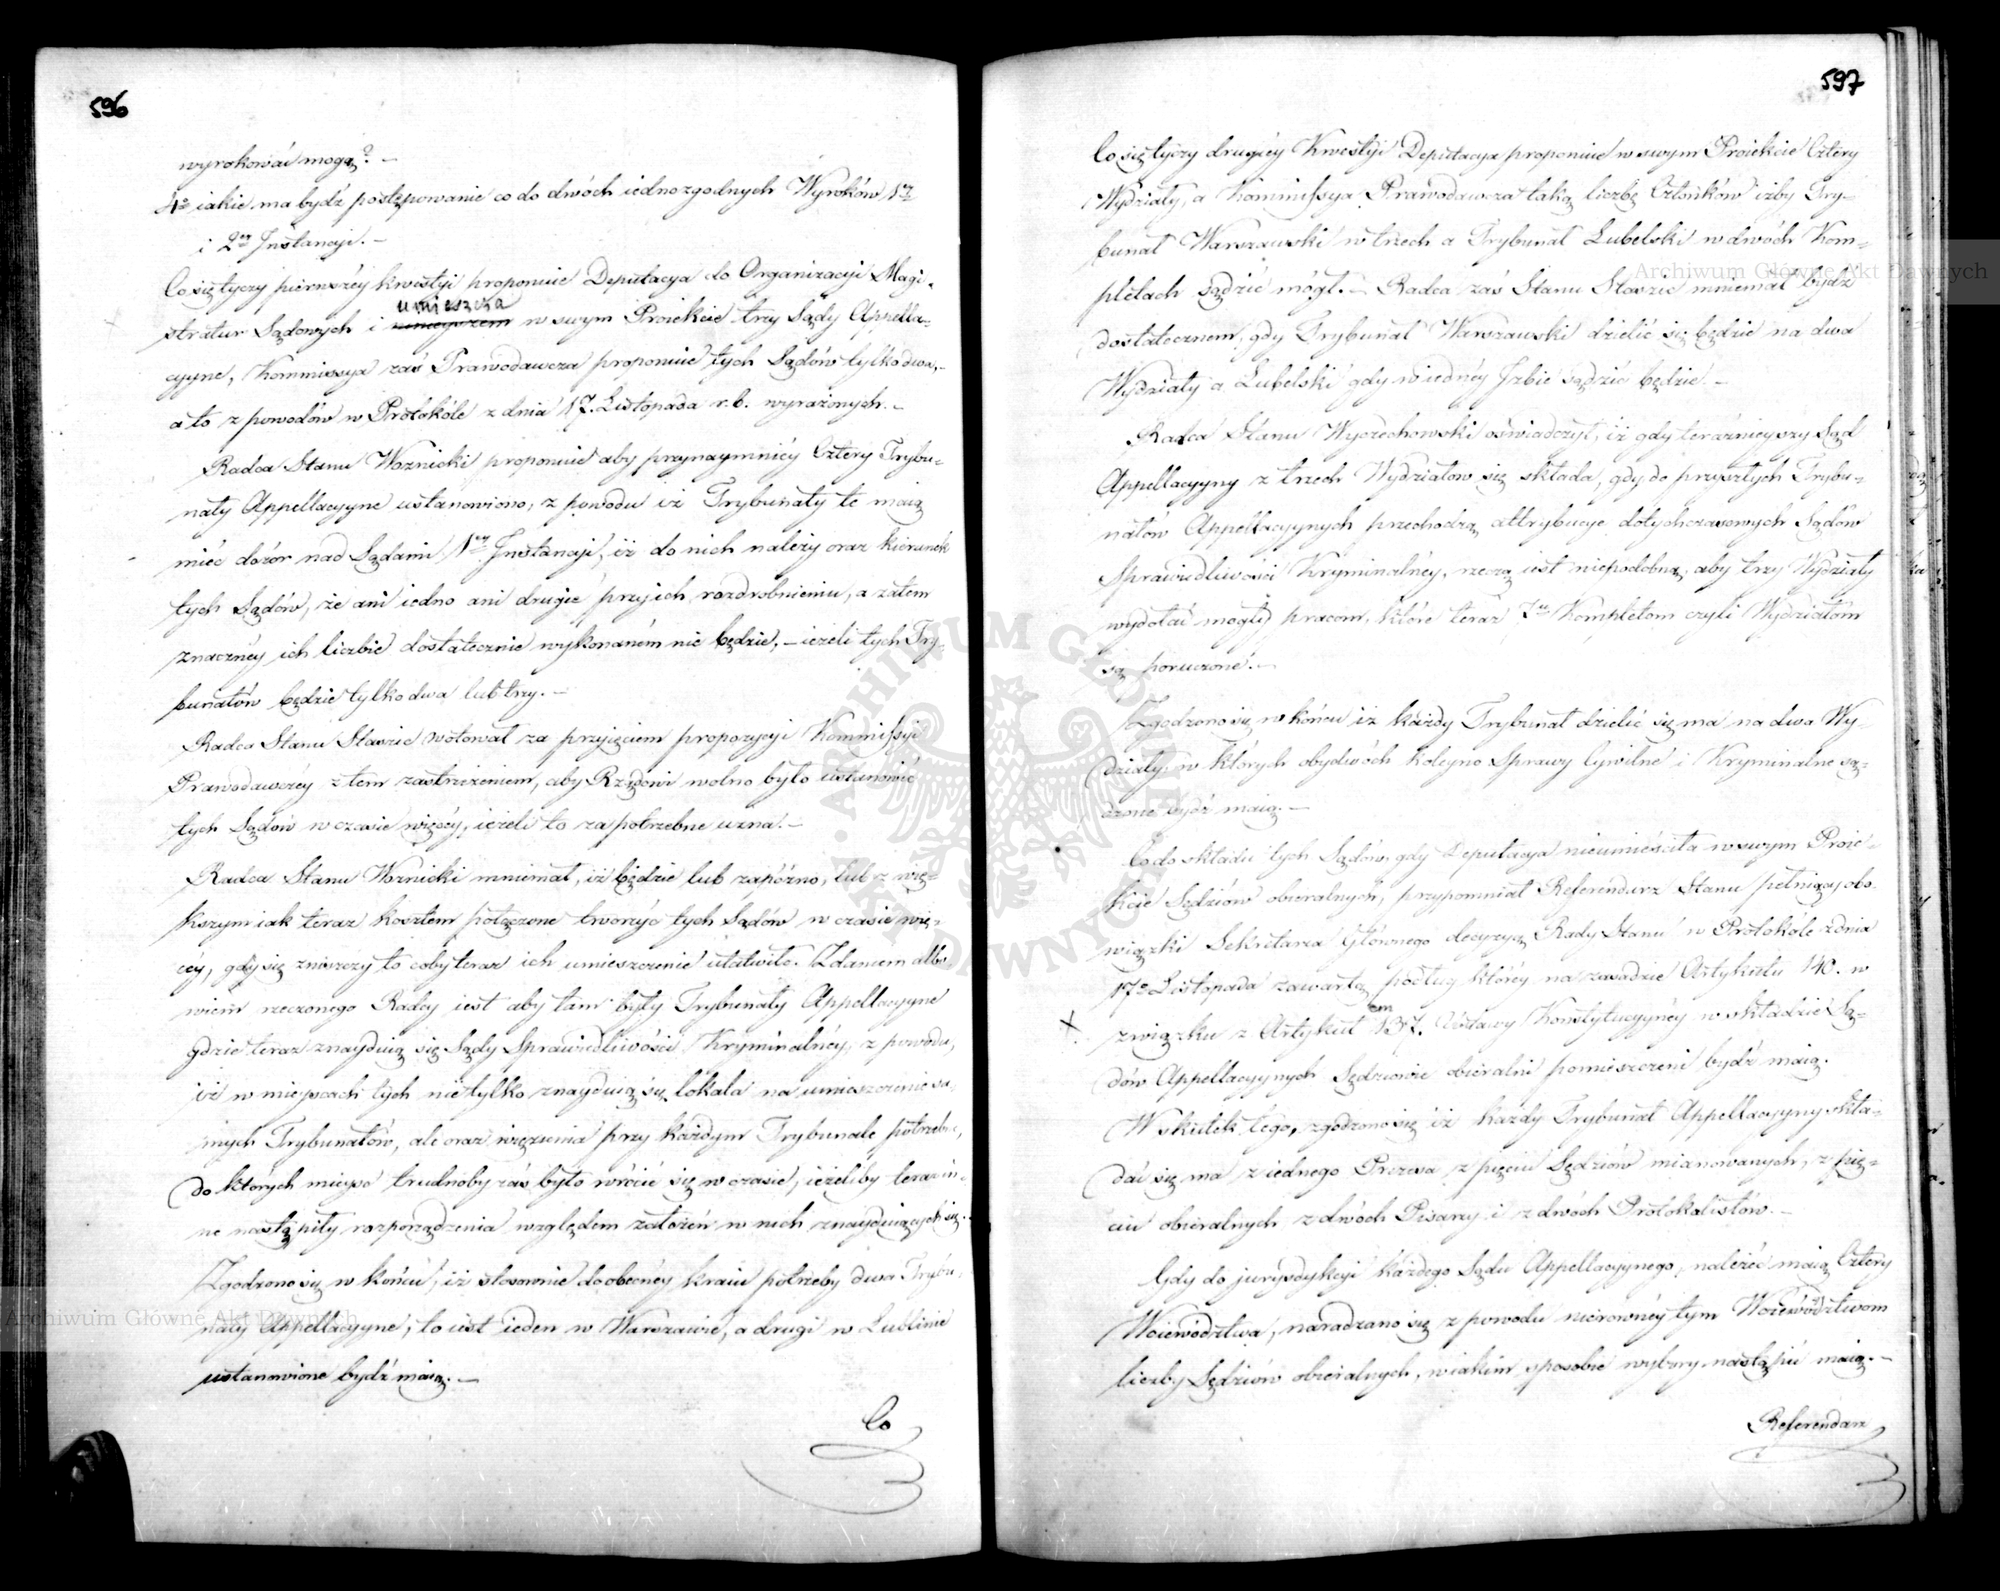 596
wyrokować mogą? —
4o iakie ma bydź postępowanie co do dwóch iednozgodnych Wyroków 1ey
i 2ey Instancji. —
Co się tyczy pierwszéy kwestyi proponuie Deputacya do Organizacyi Magi-
stratur Sądowych i umieszcza w swym Proiekcie trzy Sądy Appella-
cyyne, Kommissya zaś Prawodawcza proponuie tych Sądów tylko dwa, —
a to z powodów w Protokóle z dnia 17. Listopada r. b. wyrażonych. —
Radca Stanu Woznicki proponuie aby przynaymniéy Cztery Trybu-
nały Appellacyyne ustanowiono, z powodu iż Trybunały te maią
mieć dozór nad Sądami 1ey Instancji, iż do nich należy oraz kierunek
tych Sądów, że ani iedno ani drugie przy ich rozdrobnieniu, a zatem
znacznéy ich liczbie dostatecznie wykonaném nie będzie, — ieżeli tych Try-
bunałów będzie tylko dwa lub trzy. —
Radca Stanu Staszic wotował za przyjęciem propozycyi Kommissyi
Prawodawczéy z tem zastrzeżeniem, aby Rządowi wolno było ustanowić
tych Sądów w czasie więcéy, ieżeli to za potrzebne uzna. —
Radca Stanu Woznicki mniemał, iż będzie lub zapóźno, lub z wię-
kszym iak teraz kosztem połączone tworzyć tych Sądów w czasie wię-
céy, gdy się zniszczy to coby teraz ich umieszczenie ułatwiło. Zdaniem albo
wiem rzeczonego Radcy iest aby tam były Trybunały Appellacyyne
gdzie teraz znayduią się Sądy Sprawiedliwości Kryminalnéy, z powodu,
iż w mieyscach tych nietylko znayduią się lokala na umieszczenie sa-
mych Trybunałów, ale oraz więzienia przy każdym Trybunale potrzebne,
do których mieysc trudnoby zaś było wrócić się w czasie, ieżeliby teraz in-
ne nastąpiły rozporządzenia względem założeń w nich znayduiących się. —
Zgodzono się w końcu, iż stosownie do obecnéy kraiu potrzeby dwa Trybu-
nały Appellacyyne, to iest ieden w Warszawie, a drugi w Lublinie
ustanowione bydź maią. —
Co
597
Co się tyczy drugiéy Kwestyi Deputacya proponuie w swym Proiekcie Cztery
Wydziały, a Kommissya Prawodawcza taką liczbę Członków iżby Try-
bunał Warszawski w trzech a Trybunał Lubelski w dwóch Kom-
pletach sądzić mógł. — Radca zaś Stanu Staszic mniemał bydź
dostatecznem, gdy Trybunał Warszawski dzielić się będzie na dwa
Wydziały a Lubelski gdy w iednéy Izbie sądzić będzie. —
Radca Stanu Wyczechowski oświadczył, iż gdy teraźnieyszy Sąd
Appellacyyny z trzech Wydziałów się składa, gdy do przyszłych Trybu-
nałów Appellacyynych przechodzą attrybucye dotychczasowych Sądów
Sprawiedliwości Kryminalnéy, rzeczą iest niepodobną, aby trzy Wydziały
wydołać mogły pracom, które teraz 7u Kompletom czyli Wydziałom
są poruczone. —
Zgodzono się w końcu iż każdy Trybunał dzielić się ma na dwa Wy-
działy, w których obydwóch koleyno Sprawy Cywilne i Kryminalne są-
dzone bydź maią. —
Co do składu tych Sądów, gdy Deputacya nieumieściła w swym Proie-
kcie Sędziów obieralnych, przypomniał Referendarz Stanu pełniący obo-
wiązki Sekretarza Głównego decyzyą Rady Stanu w Protokóle z dnia
17o Listopada zawartą, podług któréy na zasadzie Artykułu 140. w
związku z Artykułem 137. Ustawy Konstytucyynéy w składzie Są-
dów Appellacyynych Sędziowie obieralni pomieszczeni bydź maią.
W skutek tego, zgodzono się iż każdy Trybunał Appellacyyny skła-
dać się ma z iednego Prezesa z pięciu Sędziów mianowanych, z pię-
ciu obieralnych z dwóch Pisarzy i z dwóch Protokolistów. —
Gdy do jurysdykcyi każdego Sądu Appellacyynego, należeć maią Cztery
Woiewództwa, naradzano się z powodu nierownéy tym Woiewództwom
liczby Sędziów obieralnych, w iakim sposobie wybory nastąpić maią. —
Referendarz
Archiwum Główne Akt Dawnych
Archiwum Główne Akt Dawnych